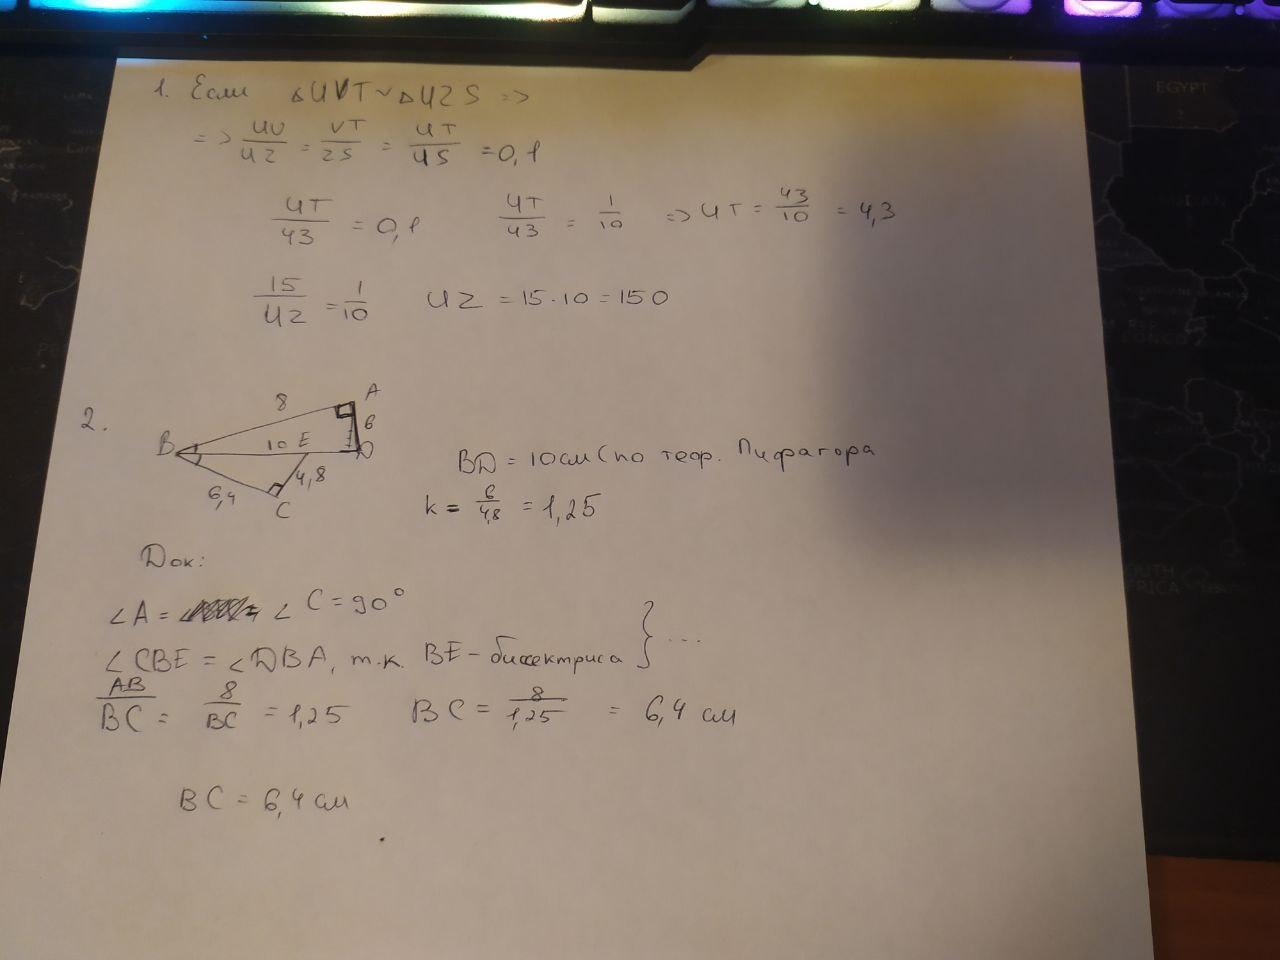 1. Если ΔUVT ~ ΔUZS =>
=> UV/UZ = VT/ZS = UT/US = 0,1
UT/43 = 0,1 UT/43 = 1/10 => UT = 43/10 = 4,3
15/UZ = 1/10 UZ = 15·10 = 150
2.
8 A
B 10 E 6 D
6,4 4,8
C
BD = 10см (по теор. Пифагора
k = 6/4,8 = 1,25
Док:
∠A = ∠C = 90°
∠CBE = ∠DBA, т.к. BE – биссектриса } ...
AB/BC = 8/BC = 1,25 BC = 8/1,25 = 6,4 см
BC = 6,4 см
EGYPT